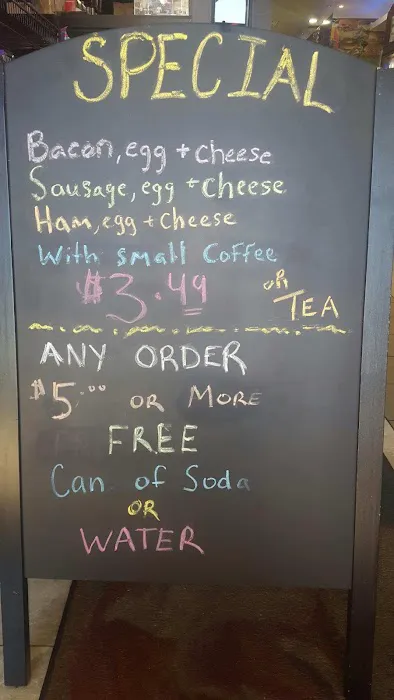 SPECIAL
Bacon, egg + cheese
Sausage, egg + cheese
Ham, egg + cheese
With small Coffee
$3.49 or TEA
ANY ORDER
$5.00 OR MORE
FREE
Can of Soda
OR
WATER